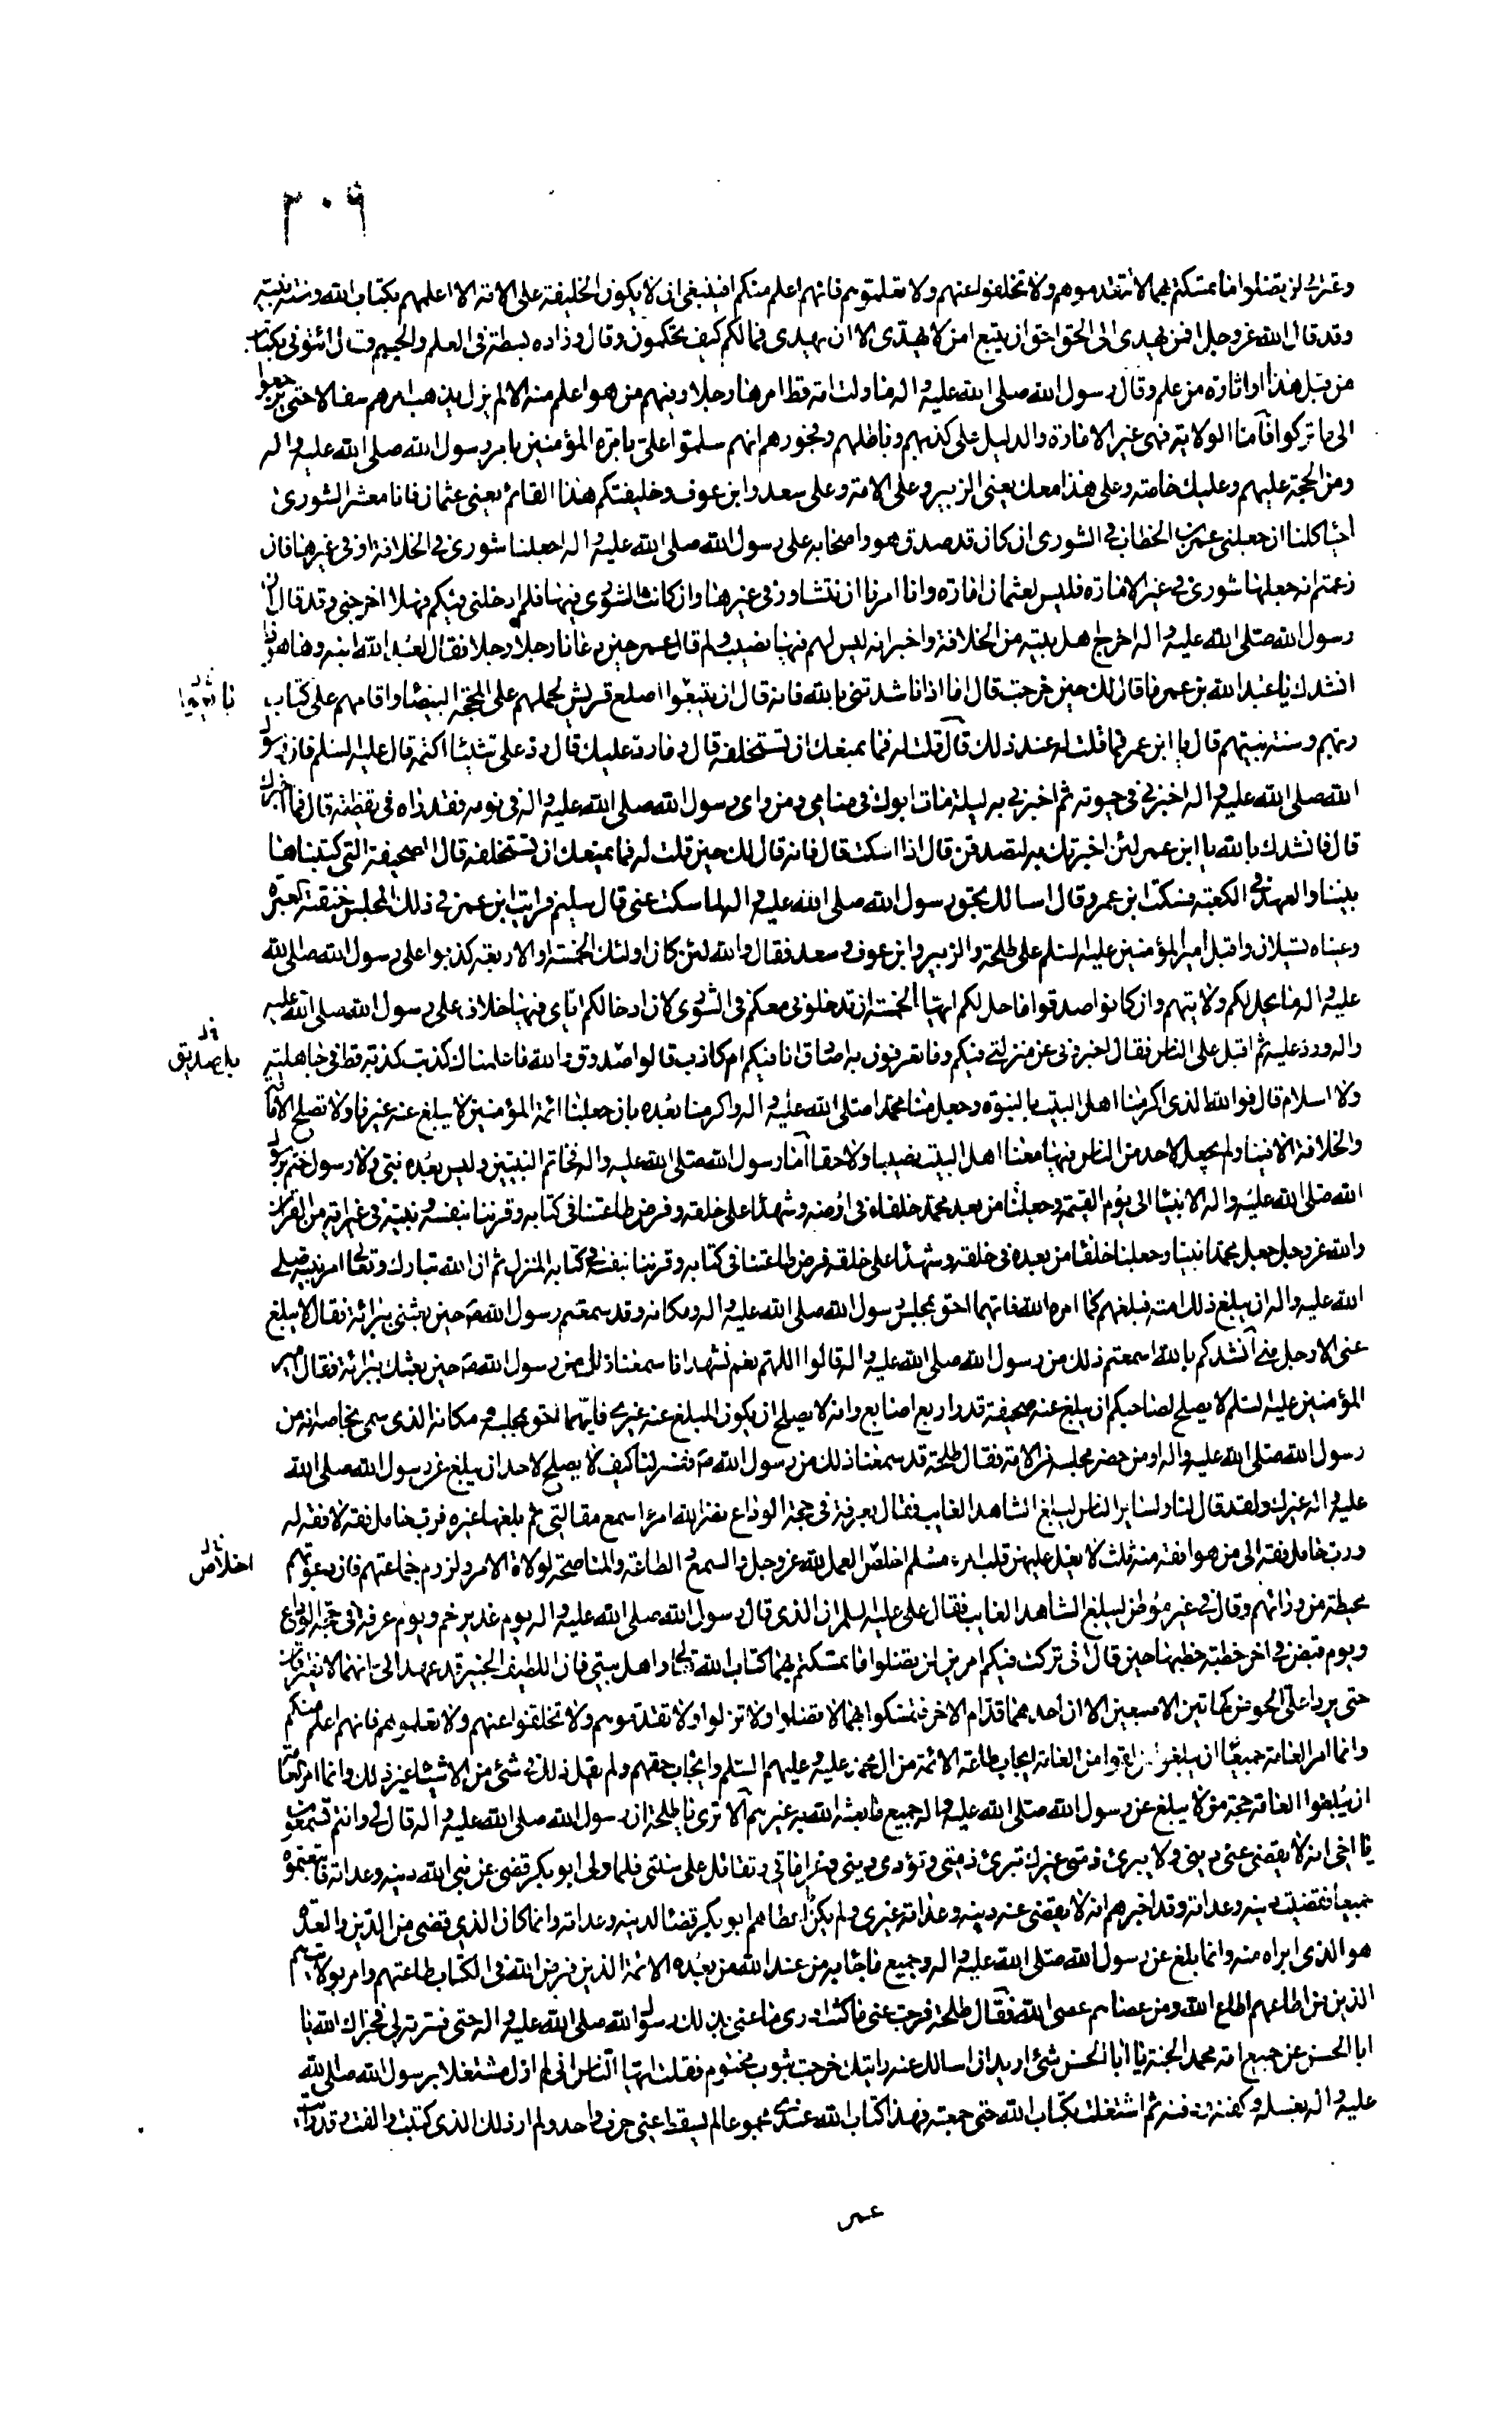 ٣٠٦
وعترتي لن تضلوا ما تمسكتم بهما لا تتقدموهم ولا تخلفوا عنهم ولا تعلموهم فانهم اعلم منكم افينبغي ان لا يكون الخليفة على الامة الا اعلمهم بكتاب الله وسنة نبيه
وقد قال الله عز وجل افمن يهدى الى الحق احق ان يتبع امن لا يهدى الا ان يهدى فما لكم كيف تحكمون وقال وزاده بسطة في العلم والجسم وقال ائتوني بكتاب
من قبل هذا او اثارة من علم وقال رسول الله صلى الله عليه واله ما ولت امة قط امرها رجلا وفيهم من هو اعلم منه الا لم يزل يذهب امرهم سفالا حتى يرجعوا
الى ما تركوا فاما الولاية فهي غير الامارة والدليل على كذبهم وباطلهم وفجورهم انهم سلموا على بامرة المؤمنين بامر رسول الله صلى الله عليه واله
ومن الحجة عليهم وعليك خاصة وعلى هذا معك يعني الزبير وعلى الامة وعلى سعد وابن عوف وخليفتكم هذا القائم يعني عثمان فانا معشر الشورى
احياء كلنا ان جعلني عمر بن الخطاب في الشورى ان كان قد صدق هو واصحابه على رسول الله صلى الله عليه واله اجعلنا شورى في الخلافة او في غيرها فان
زعمتم انه جعلها شورى في غير الامارة فليس لعثمان امارة وانما امرنا ان نتشاور في غيرها وان كانت الشورى فيها فلم ادخلني فيكم فهلا اخرجني وقد قال ان
رسول الله صلى الله عليه واله اخرج اهل بيته من الخلافة واخبر انه ليس لهم فيها نصيب ولم قال عمر حين دعانا رجلا رجلا فقال لعبد الله ابنه وها هو ذا
انشدك يا عبد الله بن عمر ما قال لك حين خرجت قال اما اذا ناشدتني بالله فانه قال ان يتبعوا اصلع قريش لحملهم على المحجة البيضاء واقامهم على كتاب
ربهم وسنة نبيهم قال يا ابن عمر فما قلت له عند ذلك قال قلت له فما يمنعك ان تستخلفه قال وما رد عليك قال رد على شيئا اكتمه قال عليه السلم فان رسول
الله صلى الله عليه واله اخبرني في حيوته ثم اخبرني به ليلة مات ابوك في منامي ومن راى رسول الله صلى الله عليه واله في نومه فقد راه في يقظته قال فما اخبرك
قال فانشدك بالله يا ابن عمر لئن اخبرتك به لتصدقن قال اذا اسكت قال فانه قال لك حين قلت له فما يمنعك ان تستخلفه قال الصحيفة التي كتبناها
بيننا والعهد في الكعبة فسكت ابن عمر وقال اسالك بحق رسول الله صلى الله عليه واله لما سكت عني قال سليم فرايت ابن عمر في ذلك المجلس خنقته العبرة
وعيناه تسيلان واقبل امير المؤمنين عليه السلم على طلحة والزبير وابن عوف وسعد فقال والله لئن كان اولئك الخمسة او الاربعة كذبوا على رسول الله صلى الله
عليه واله ما يحل لكم ولايتهم وان كانوا صدقوا ما حل لكم ايها الخمسة ان تدخلوني معكم في الشورى لان ادخالكم اياى فيها خلاف على رسول الله صلى الله عليه
واله ورد عليه ثم اقبل على الناس فقال اخبروني عن منزلتي فيكم وما تعرفوني به اصادق انا فيكم ام كاذب قالوا صدوق والله ما علمناك كذبت كذبة قط في جاهلية
ولا اسلام قال فوالله الذى اكرمنا اهل البيت بالنبوة وجعل منا محمدا صلى الله عليه واله واكرمنا بعده بان جعلنا ائمة المؤمنين لا يبلغ عنه غيرنا ولا تصلح الامامة
والخلافة الا فينا ولم يجعل لاحد من الناس فيها معنا اهل البيت نصيبا ولا حقا اما رسول الله صلى الله عليه واله فخاتم النبيين وليس بعده نبي ولا رسول ختم برسول
الله صلى الله عليه واله الانبياء الى يوم القيمة وجعلنا من بعد محمد خلفاء في ارضه وشهداء على خلقه وفرض طاعتنا في كتابه وقرننا بنفسه ونبيه في غير اية من القران
والله عز وجل جعل محمدا نبيا وجعلنا خلفاء من بعده في خلقه وشهداء على خلقه فرض طاعتنا في كتابه وقرننا بنفسه في كتابه المنزل ثم ان الله تبارك وتعالى امر نبيه صلى
الله عليه واله ان يبلغ ذلك امته فبلغهم كما امره الله فايهما احق بمجلس رسول الله صلى الله عليه واله ومكانه وقد سمعتم رسول الله ص حين بعثني ببرائة فقال لا يبلغ
عني الا رجل مني انشدكم بالله اسمعتم ذلك من رسول الله صلى الله عليه واله قالوا اللهم نعم نشهد انا سمعنا ذلك من رسول الله ص حين بعثك ببرائة فقال امير
المؤمنين عليه السلم لا يصلح لصاحبكم ان يبلغ عنه صحيفة قدر اربع اصابع وانه لا يصلح ان يكون المبلغ عنه غيري فايهما احق بمجلسه ومكانه الذى سمى بخاصة انه من
رسول الله صلى الله عليه واله او من حضر مجلسه من الامة فقال طلحة قد سمعنا ذلك من رسول الله ص ففسر لنا كيف لا يصلح لاحد ان يبلغ عن رسول الله صلى الله
عليه واله غيرك ولقد قال لنا ولساير الناس ليبلغ الشاهد الغايب فقال بعرفة في حجة الوداع نضر الله امرءا سمع مقالتي ثم بلغها غيره فرب حامل فقه لا فقه له
ورب حامل فقه الى من هو افقه منه ثلث لا يغل عليهن قلب امرء مسلم اخلص العمل لله عز وجل والسمع والطاعة والمناصحة لولاة الامر ولزوم جماعتهم فان دعوتهم
محيطة من ورائهم وقال في غير موطن ليبلغ الشاهد الغايب فقال على عليه السلم ان الذى قال رسول الله صلى الله عليه واله يوم غدير خم ويوم عرفة في حجة الوداع
ويوم قبض في اخر خطبة خطبها حين قال اني تركت فيكم امرين لن تضلوا ما تمسكتم بهما كتاب الله تعالى واهل بيتي فان اللطيف الخبير قد عهد الى انهما لا يفترقان
حتى يردا على الحوض كهاتين الاصبعين الا ان احدهما قدام الاخر فتمسكوا بهما لا تضلوا ولا تزلوا ولا تقدموهم ولا تخلفوا عنهم ولا تعلموهم فانهم اعلم منكم
وانما امر العامة جميعا ان يبلغوا من لقوا من العامة ايجاب طاعة الائمة من ال محمد عليه وعليهم السلم وايجاب حقهم ولم يقل ذلك في شئ من الاشياء غير ذلك وانما امر العامة
ان يبلغوا العامة حجة من لا يبلغ عن رسول الله صلى الله عليه واله جميع ما بعثه الله به غيرهم الا ترى يا طلحة ان رسول الله صلى الله عليه واله قال لي وانتم تسمعون
يا اخي انه لا يقضى عني ديني ولا يبرئ ذمتي غيرك تبرئ ذمتي وتؤدى ديني وغراماتي وتقاتل على سنتي فلما ولى ابو بكر قضى عن نبي الله دينه وعداته فاتبعتموه
جميعا فقضيت دينه وعداته وقد اخبرهم انه لا يقضى عنه دينه وعداته غيري ولم يكن ما اعطاهم ابو بكر قضاء لدينه وعداته وانما كان الذى قضى من الدين والعدة
هو الذى ابراه منه وانما بلغ عن رسول الله صلى الله عليه واله وجميع ما جاء به من عند الله من بعده الائمة الذين فرض الله في الكتاب طاعتهم وامر بولايتهم
الذين من اطاعهم اطاع الله ومن عصاهم عصى الله فقال طلحة فرجت عني ما كنت ادرى ما عنى بذلك رسول الله صلى الله عليه واله حتى فسرته لي فجزاك الله يا
ابا الحسن عن جميع امة محمد الجنة يا ابا الحسن شئ اريد ان اسالك عنه رايتك خرجت بثوب مختوم فقلت ايها الناس اني لم ازل مشتغلا برسول الله صلى الله
عليه واله بغسله وكفنه ودفنه ثم اشتغلت بكتاب الله حتى جمعته فهذا كتاب الله عندى مجموعا لم يسقط عني حرف واحد ولم ار ذلك الذى كتبت والفت وقد رايت
اخلاص
عمر